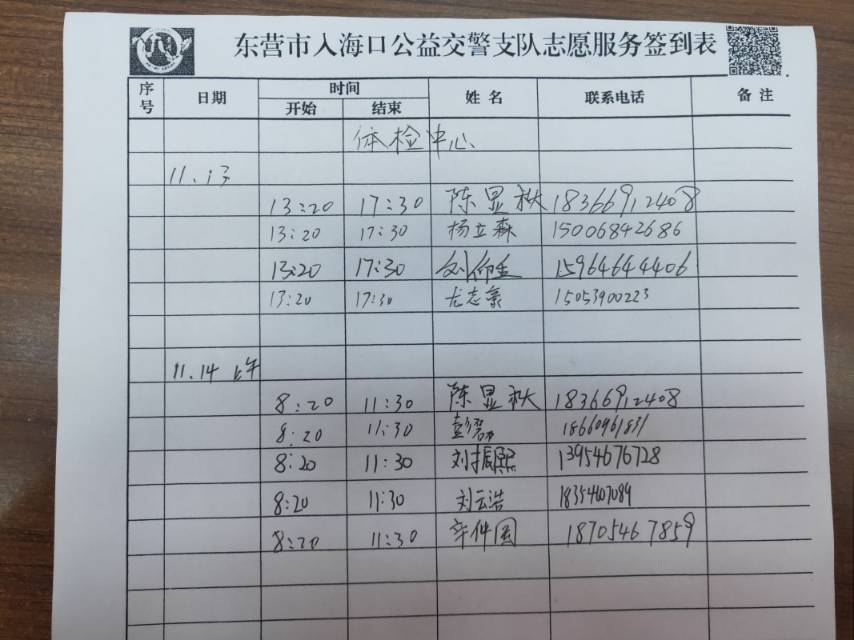 东营市入海口公益交警支队志愿服务签到表
序号 日期 时间 开始 结束 姓名 联系电话 备注
体检中心
11.13
13:20 17:30 陈显秋 18366912408
13:20 17:30 杨立森 15006842686
13:20 17:30 刘 15964644406
13:20 17:30 尤志 15053900223
11.14 上午
8:20 11:30 陈显秋 18366912408
8:20 11:30 彭 18660961831
8:20 11:30 刘振熙 13954676728
8:20 11:30 刘云浩 18354407089
8:20 11:30 辛仲国 18705467859